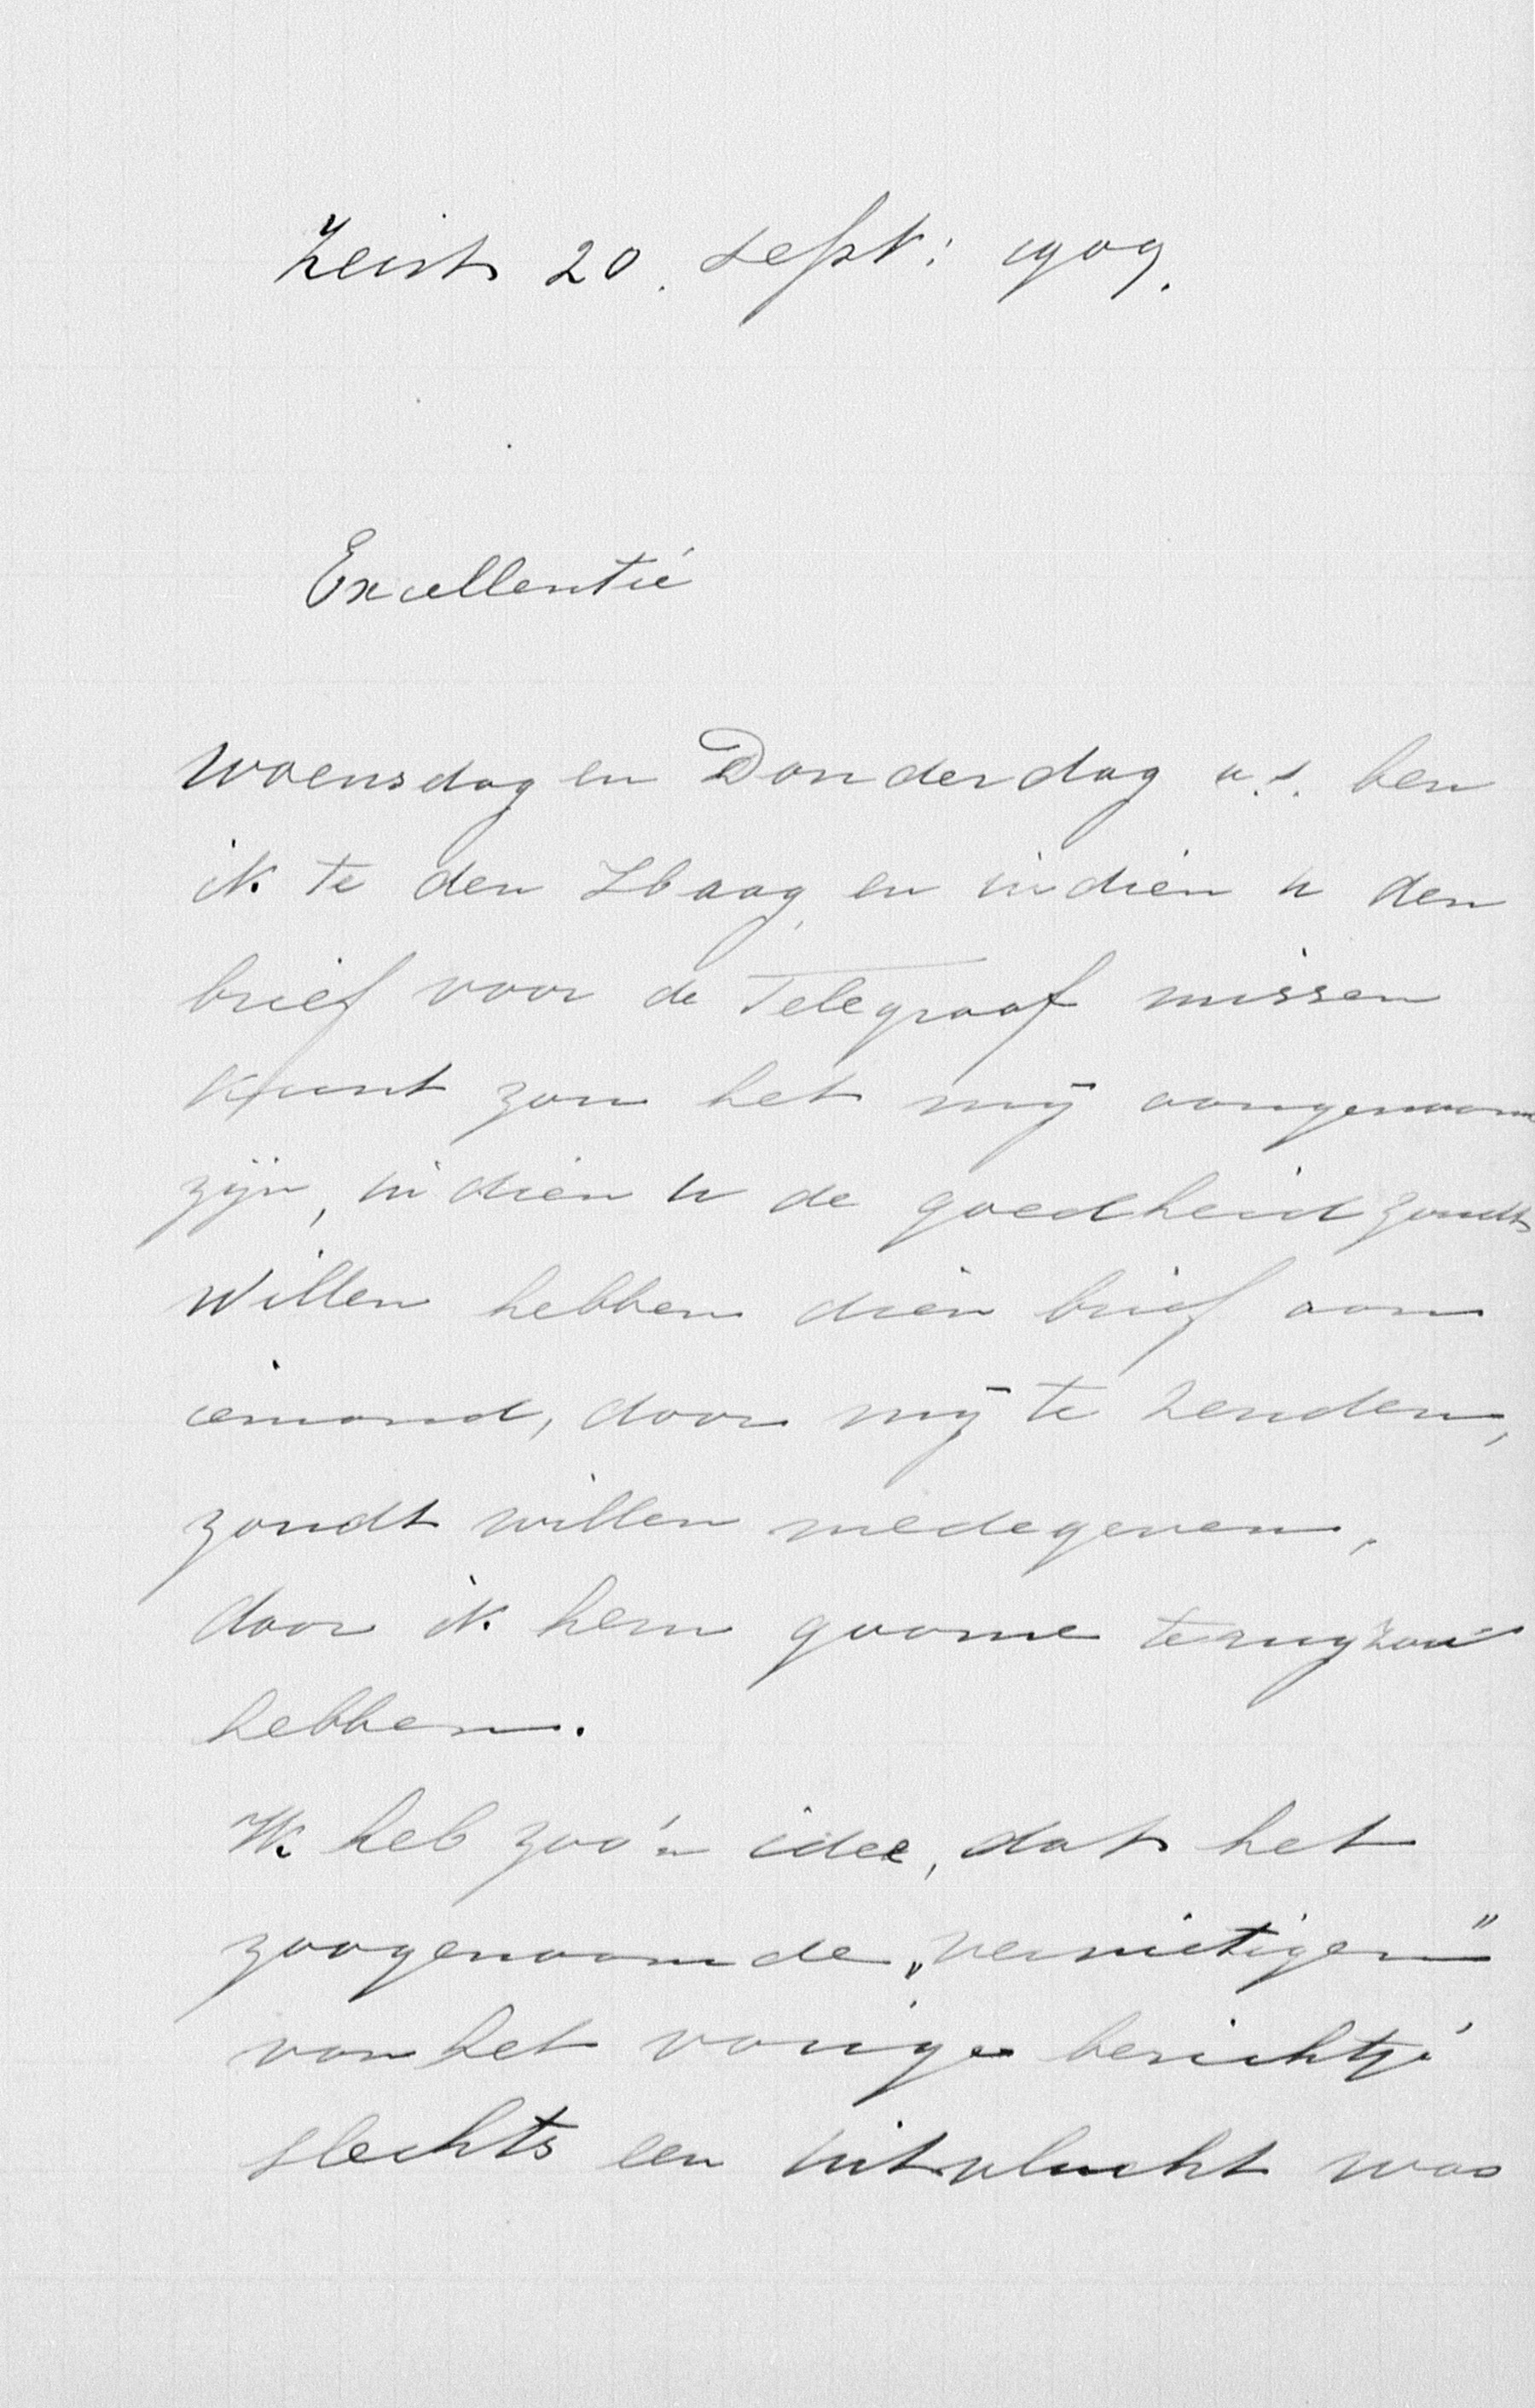 Zeist 20. Sept: 1909.
Excellentie
Woensdag en Donderdag a.s. ben
ik te den Haag, en indien u den
brief voor de Telegraaf missen
kunt zou het mij aangenaam
zijn, indien u de goedheid zoudt
willen hebben dien brief aan
iemand, door mij te zenden,
zoudt willen medegeven,
daar ik hem gaarne terug zou
hebben.
Ik heb zoo'n idee, dat het
zoogenaamde „vernietigen"
van het vorige berichtje
slechts een uitvlucht was